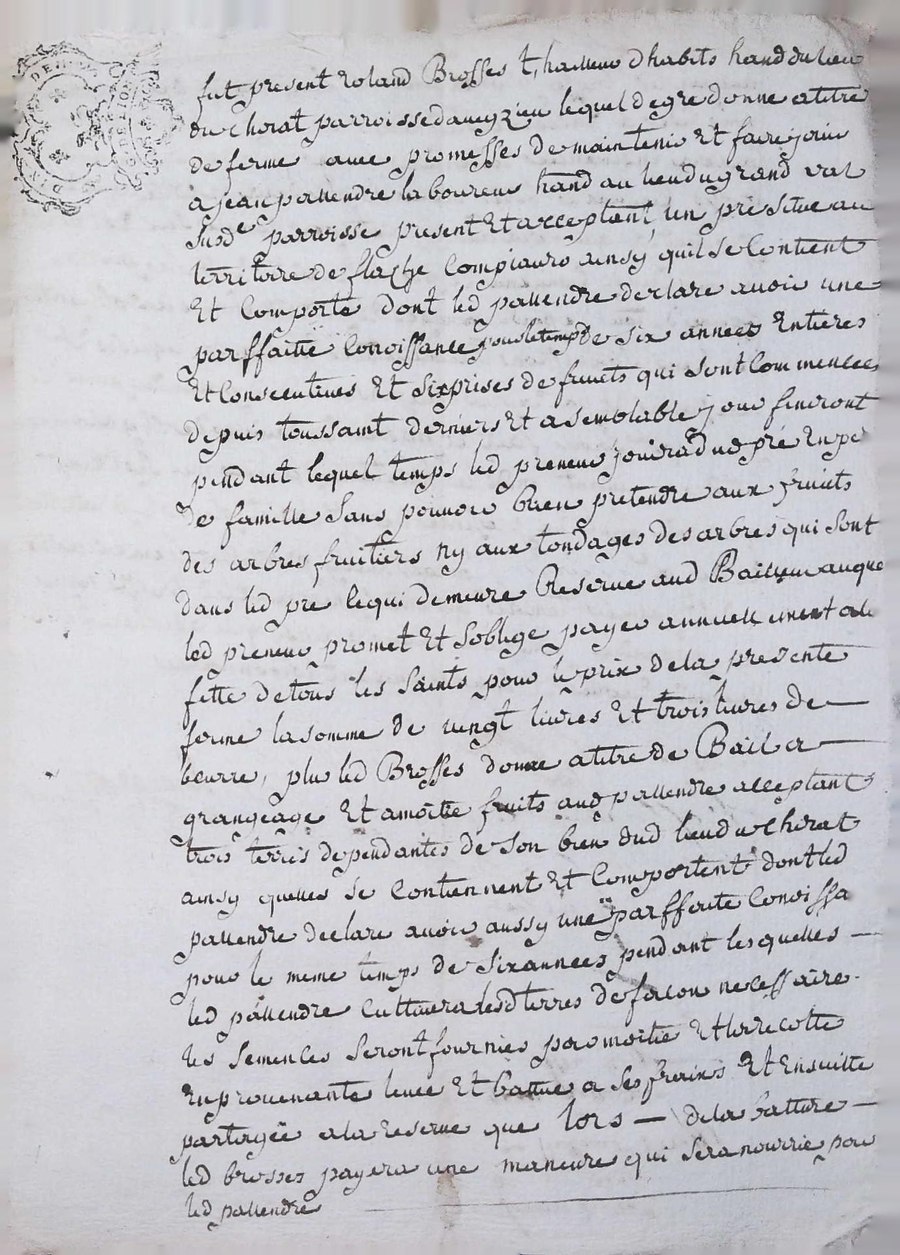 fut present roland Brosses t, hailleur dhabits hand du lieu
du Chorat parroisse daveyzieu lequel de gré donne a titre
de ferme avec promesses de maintenir Et faire jouir
a jean pallendre laboureur hand au lieu du grand val
susde parroisse present Et acceptant, un pré situé au
territoire de flache Compiauro ainsy quil se Contient
Et Comporte dont led pallendre declare avoir une
parffaitte Conoissance pour le temps de six années Entieres
Et Consecutives Et six prises de fruits qui sont Commencées
depuis toussaint derniers Et a semblable jour finiront
pendant lequel temps led preneur jouira dud pré En pe
de famille sans pouvoir bien pretendre aux fruits
des arbres fruitiers ny aux tondages des arbres qui sont
dans led pre lequi demeure Reserve aud Bailleur auque
led preneur promet Et soblige payer annuellement a la
fette de tous les saints pour le prix de la presente
ferme la somme de vingt livres Et trois livres de
beurre, plus led Brosses donne a titre de Bail a
grangeage Et a moitie fruits aud pallendre acceptant
trois terres dependantes de son bien dud lieu du Chirat
ainsy quelles se Contiennent Et Comportent dont led
pallendre declare avoir aussy une parffaite Conoissa
pour le meme temps de six années pendant lesquelles
led pallendre Cultivera lesd terres de facon necessaire
les semences seront fournies par moitie Et la recolte
En provenante levée Et battue a ses fraix Et Ensuitte
partagée a la reserve que lors — de la batture —
led brosses payera une maneuvre qui sera nourrie par
led pallendre